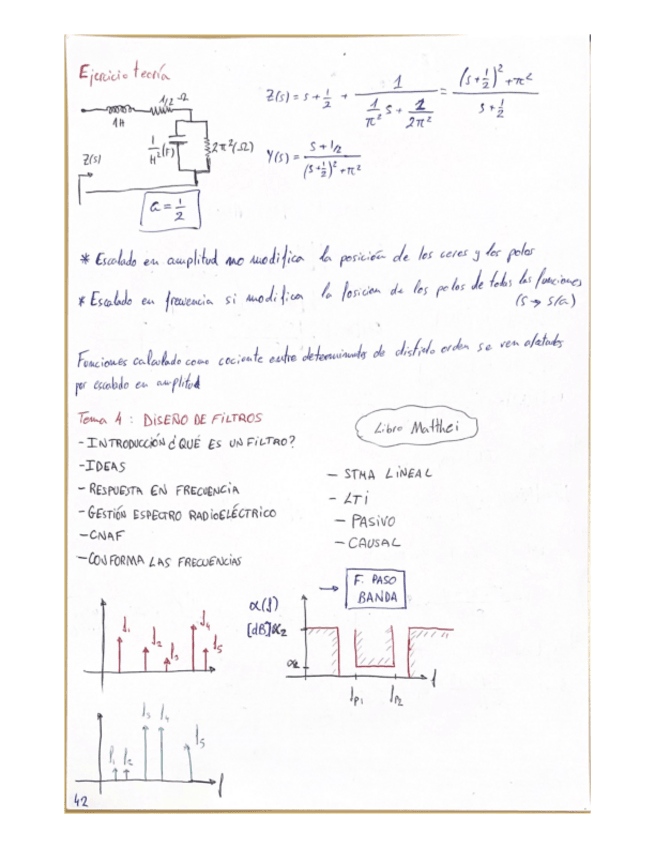 Ejercicio teoría
1/2 Ω
1H
1/π² (F)
2π² (Ω)
Z(s)
a = 1/2
Z(s) = s + 1/2 + 1 / (1/π² s + 1/2π²) = ((s+1/2)² + π²) / (s + 1/2)
Y(s) = (s + 1/2) / ((s+1/2)² + π²)
* Escalado en amplitud no modifica la posición de los ceros y los polos
* Escalado en frecuencia si modifica la posicion de los polos de todas las funciones
(s → s/a)
Funciones calculado como cociente entre determinantes de distinto orden se ven afectados
por escalado en amplitud
Tema 4 : DISEÑO DE FILTROS
Libro Matthei
- INTRODUCCIÓN ¿QUÉ ES UN FILTRO?
- IDEAS
- RESPUESTA EN FRECUENCIA
- GESTIÓN ESPECTRO RADIOELÉCTRICO
- CNAF
- CONFORMA LAS FRECUENCIAS
- STMA LINEAL
- LTI
- PASIVO
- CAUSAL
F. PASO
BANDA
f1 f2 f3 f4 f5
α(f)
[dB] α2
fp1 fp2 f
f3 f4 f5
f
42